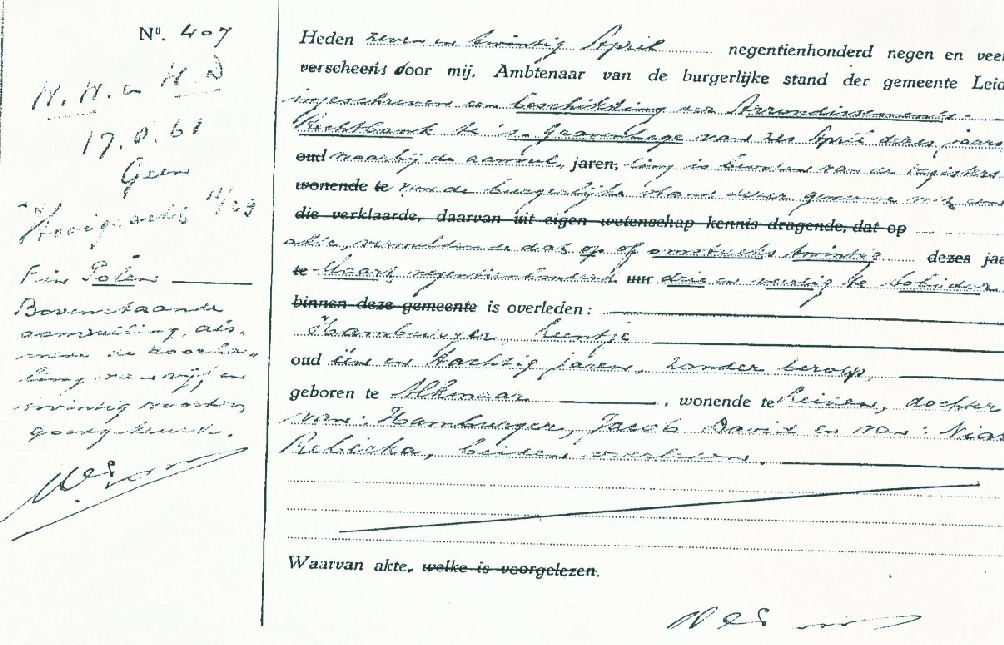 No. 407
17.8.61
Geen
Bovenstaande
aanvulling, als-
mede de doorha-
ling van vijf en
twintig woorden
goedgekeurd.
Heden zeven en twintig April negentienhonderd negen en veer
verscheen door mij, Ambtenaar van de burgerlijke stand der gemeente Leid
ingeschreven een beschikking der Arrondissements-
Rechtbank te 's-Gravenhage van 220 April dezes jaars
oud waarbij de aanvul jaren, ling is bevolen van de registers
wonende te van de burgerlijke stand dezer gemeente met een
die verklaarde, daarvan uit eigen wetenschap kennis dragende, dat op
akte, vermeldende dat op of omstreeks twintig dezes jaa
te Maart negentienhonderd uur drie en veertig te Sobibor
binnen deze gemeente is overleden:
Hamburger, Leentje
oud één en tachtig jaren, zonder beroep,
geboren te Alkmaar, wonende te Leiden, dochter
van: Hamburger, Jacob David en van:
Rebecka, beiden overleden.
Waarvan akte, welke is voorgelezen.